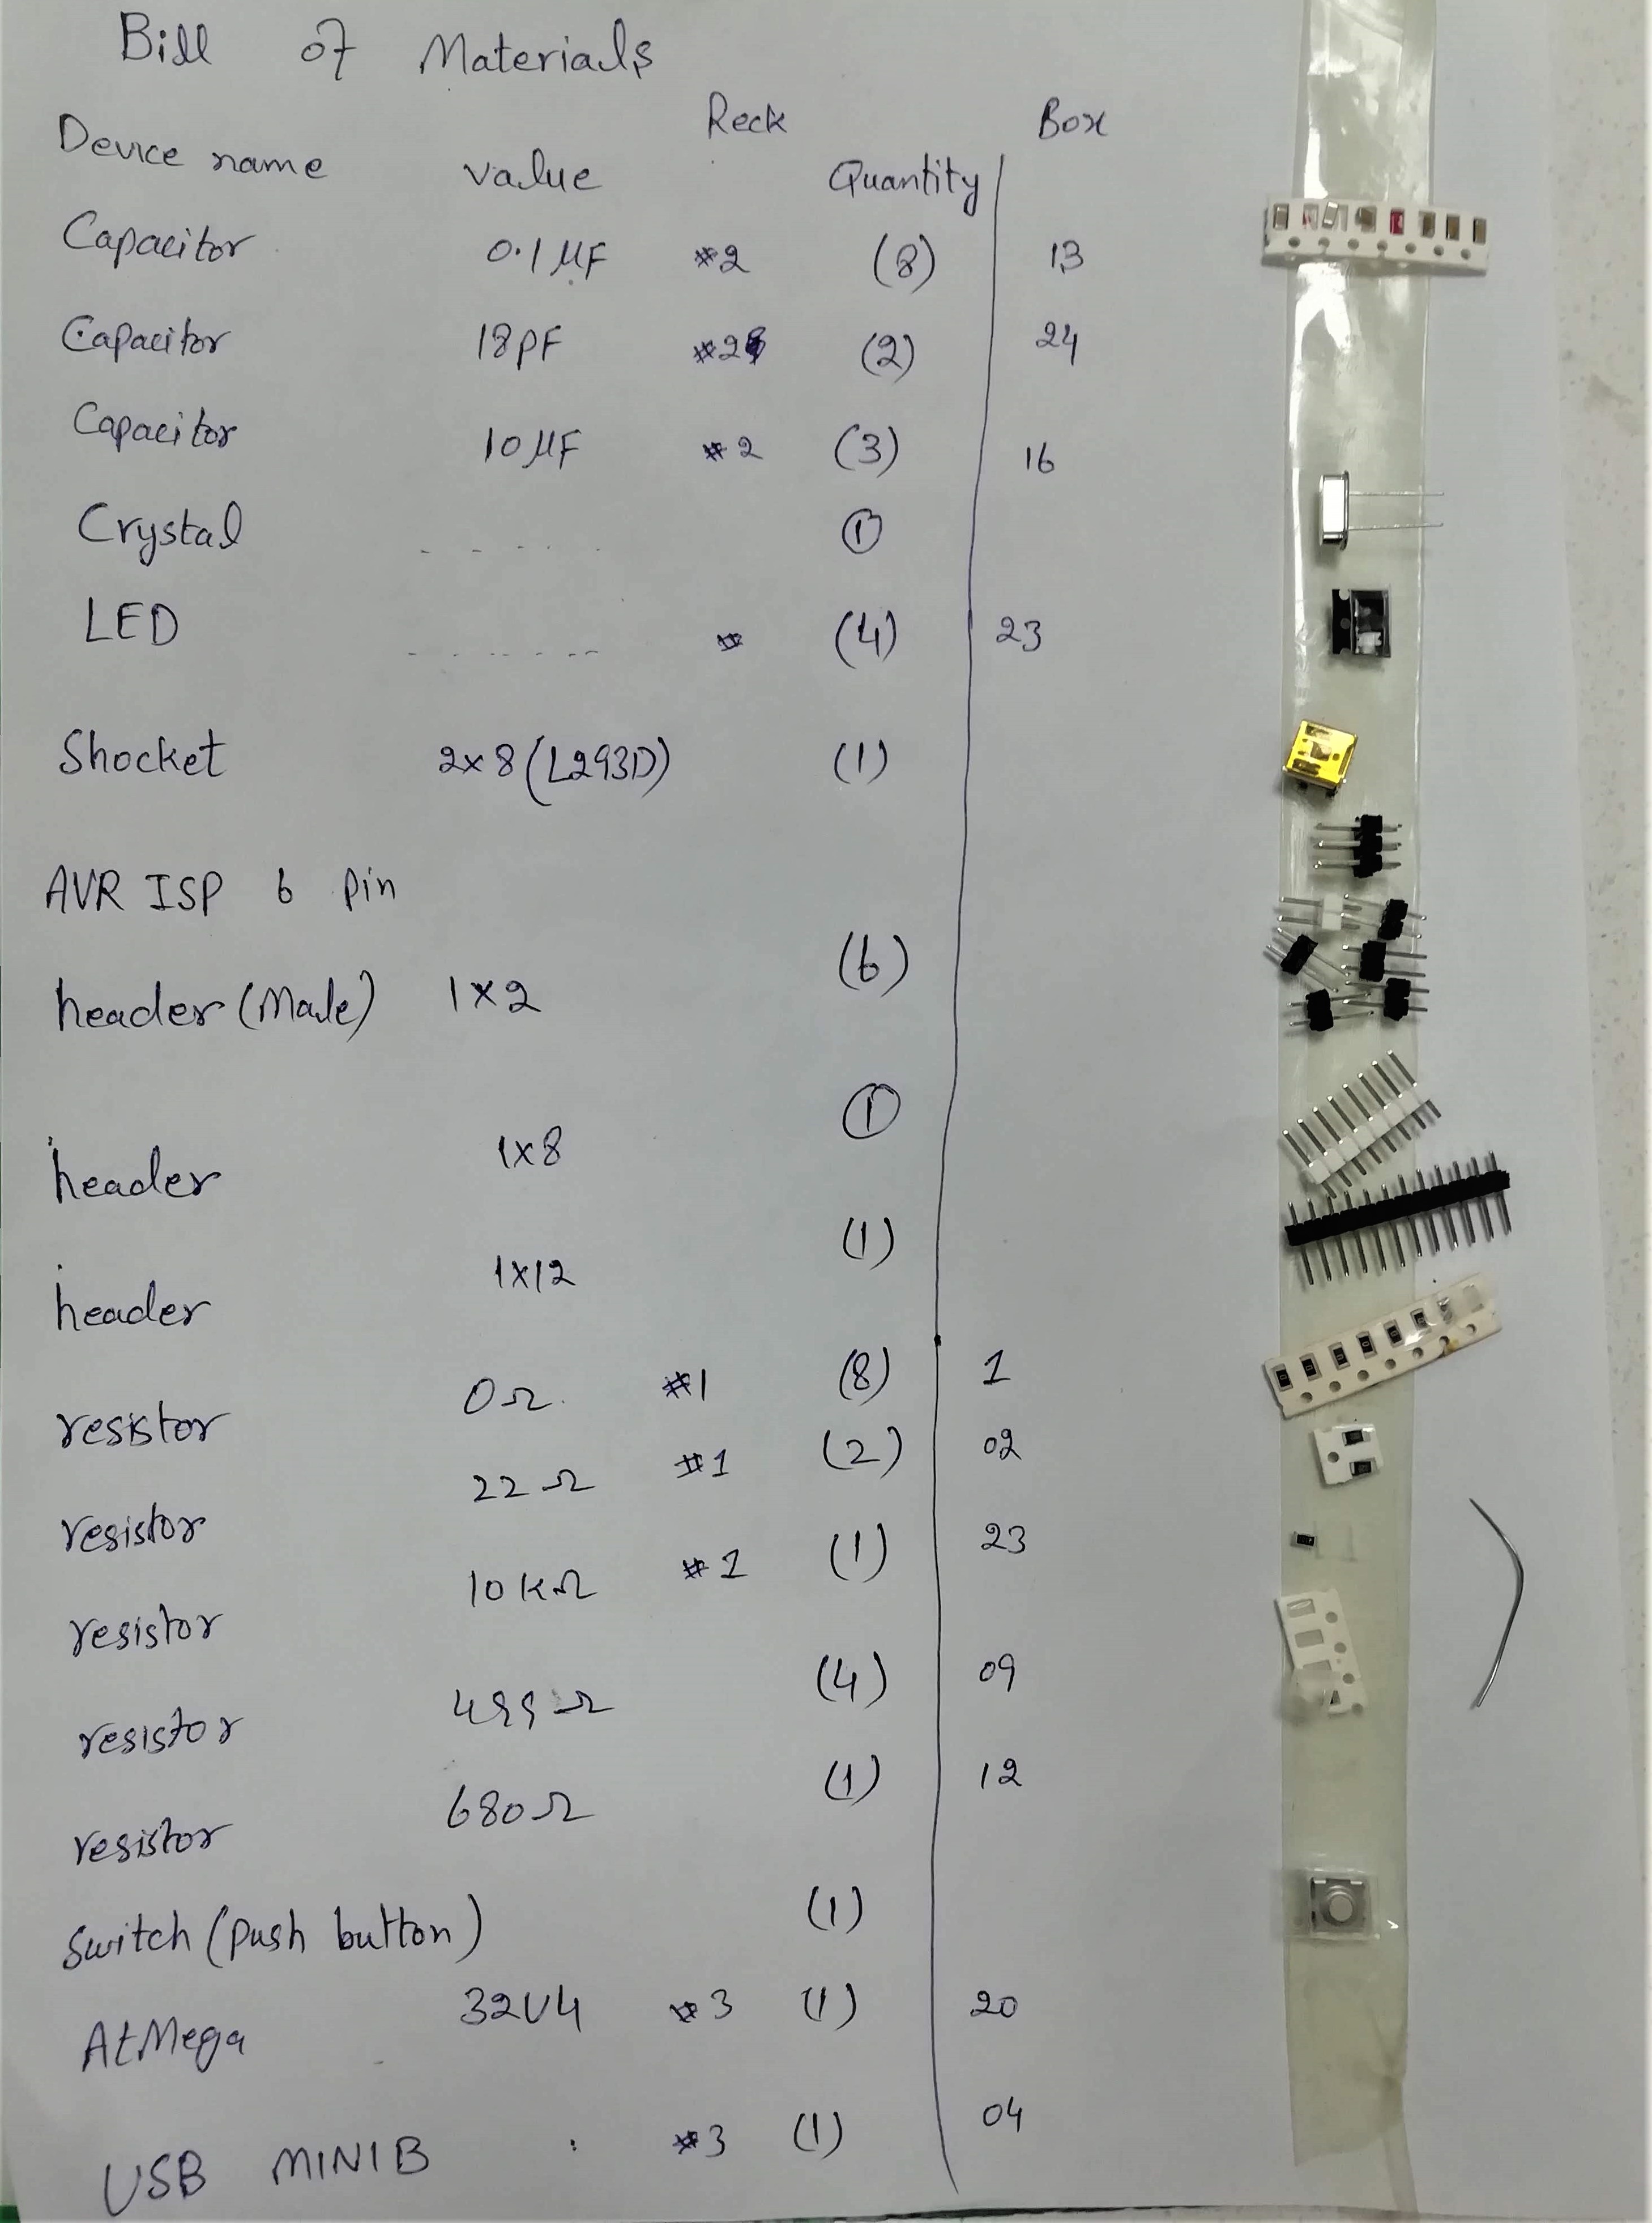 Bill of Materials
Reck Box
Device name value Quantity
Capacitor 0.1 µF #2 (8) 13
Capacitor 18PF #2 (2) 24
Capacitor 10 µF #2 (3) 16
Crystal 1
LED # (4) 23
Shocket 2x8 (L293D) (1)
AVR ISP 6 Pin
header (Male) 1x2 (6)
header 1x8 1
header 1x12 (1)
resistor 0Ω. #1 (8) 1
resistor 22 Ω #1 (2) 02
resistor 10 KΩ #1 (1) 23
resistor 499 Ω (4) 09
resistor 680Ω (1) 12
Switch (Push button) (1)
AtMega 32U4 #3 (1) 20
USB MINIB #3 (1) 04